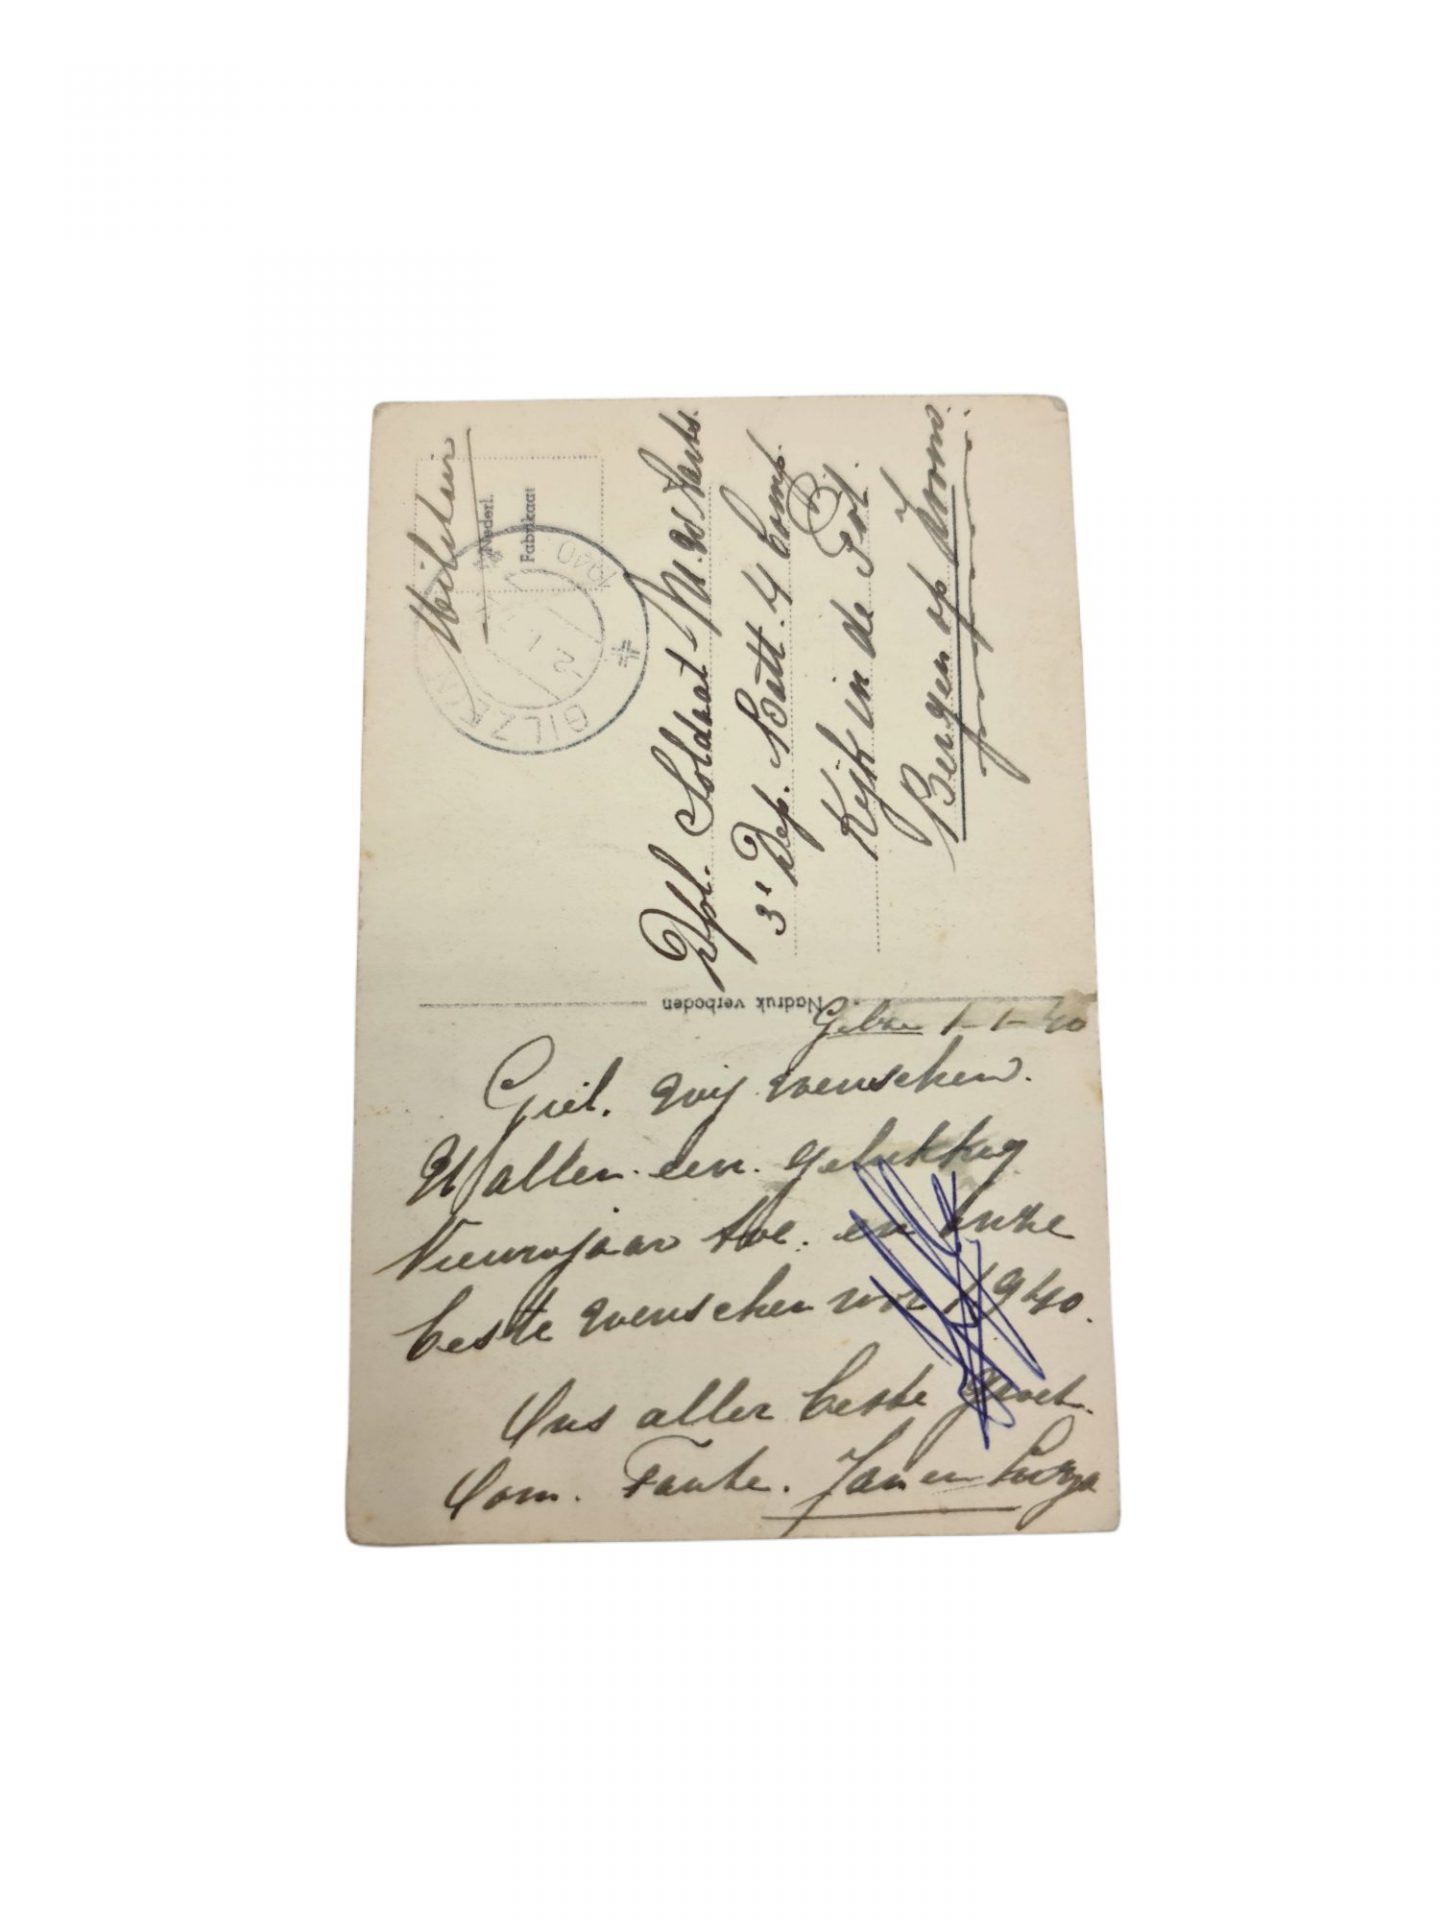 Militair
Nederl.
Fabrikaat
GILZE
2 1
1940
Dpl. Soldaat M. W
3e Dep. Batt. 4 Comp.
Kijk in de Pot.
Bergen op Zoom.
Nadruk verboden
1-1-40
Giel. Wij wenschen.
U allen. een. gelukkig
Nieuwjaar toe. en onze
beste wenschen voor 1940.
Ons aller beste groet.
Oom. Tante. Jan en